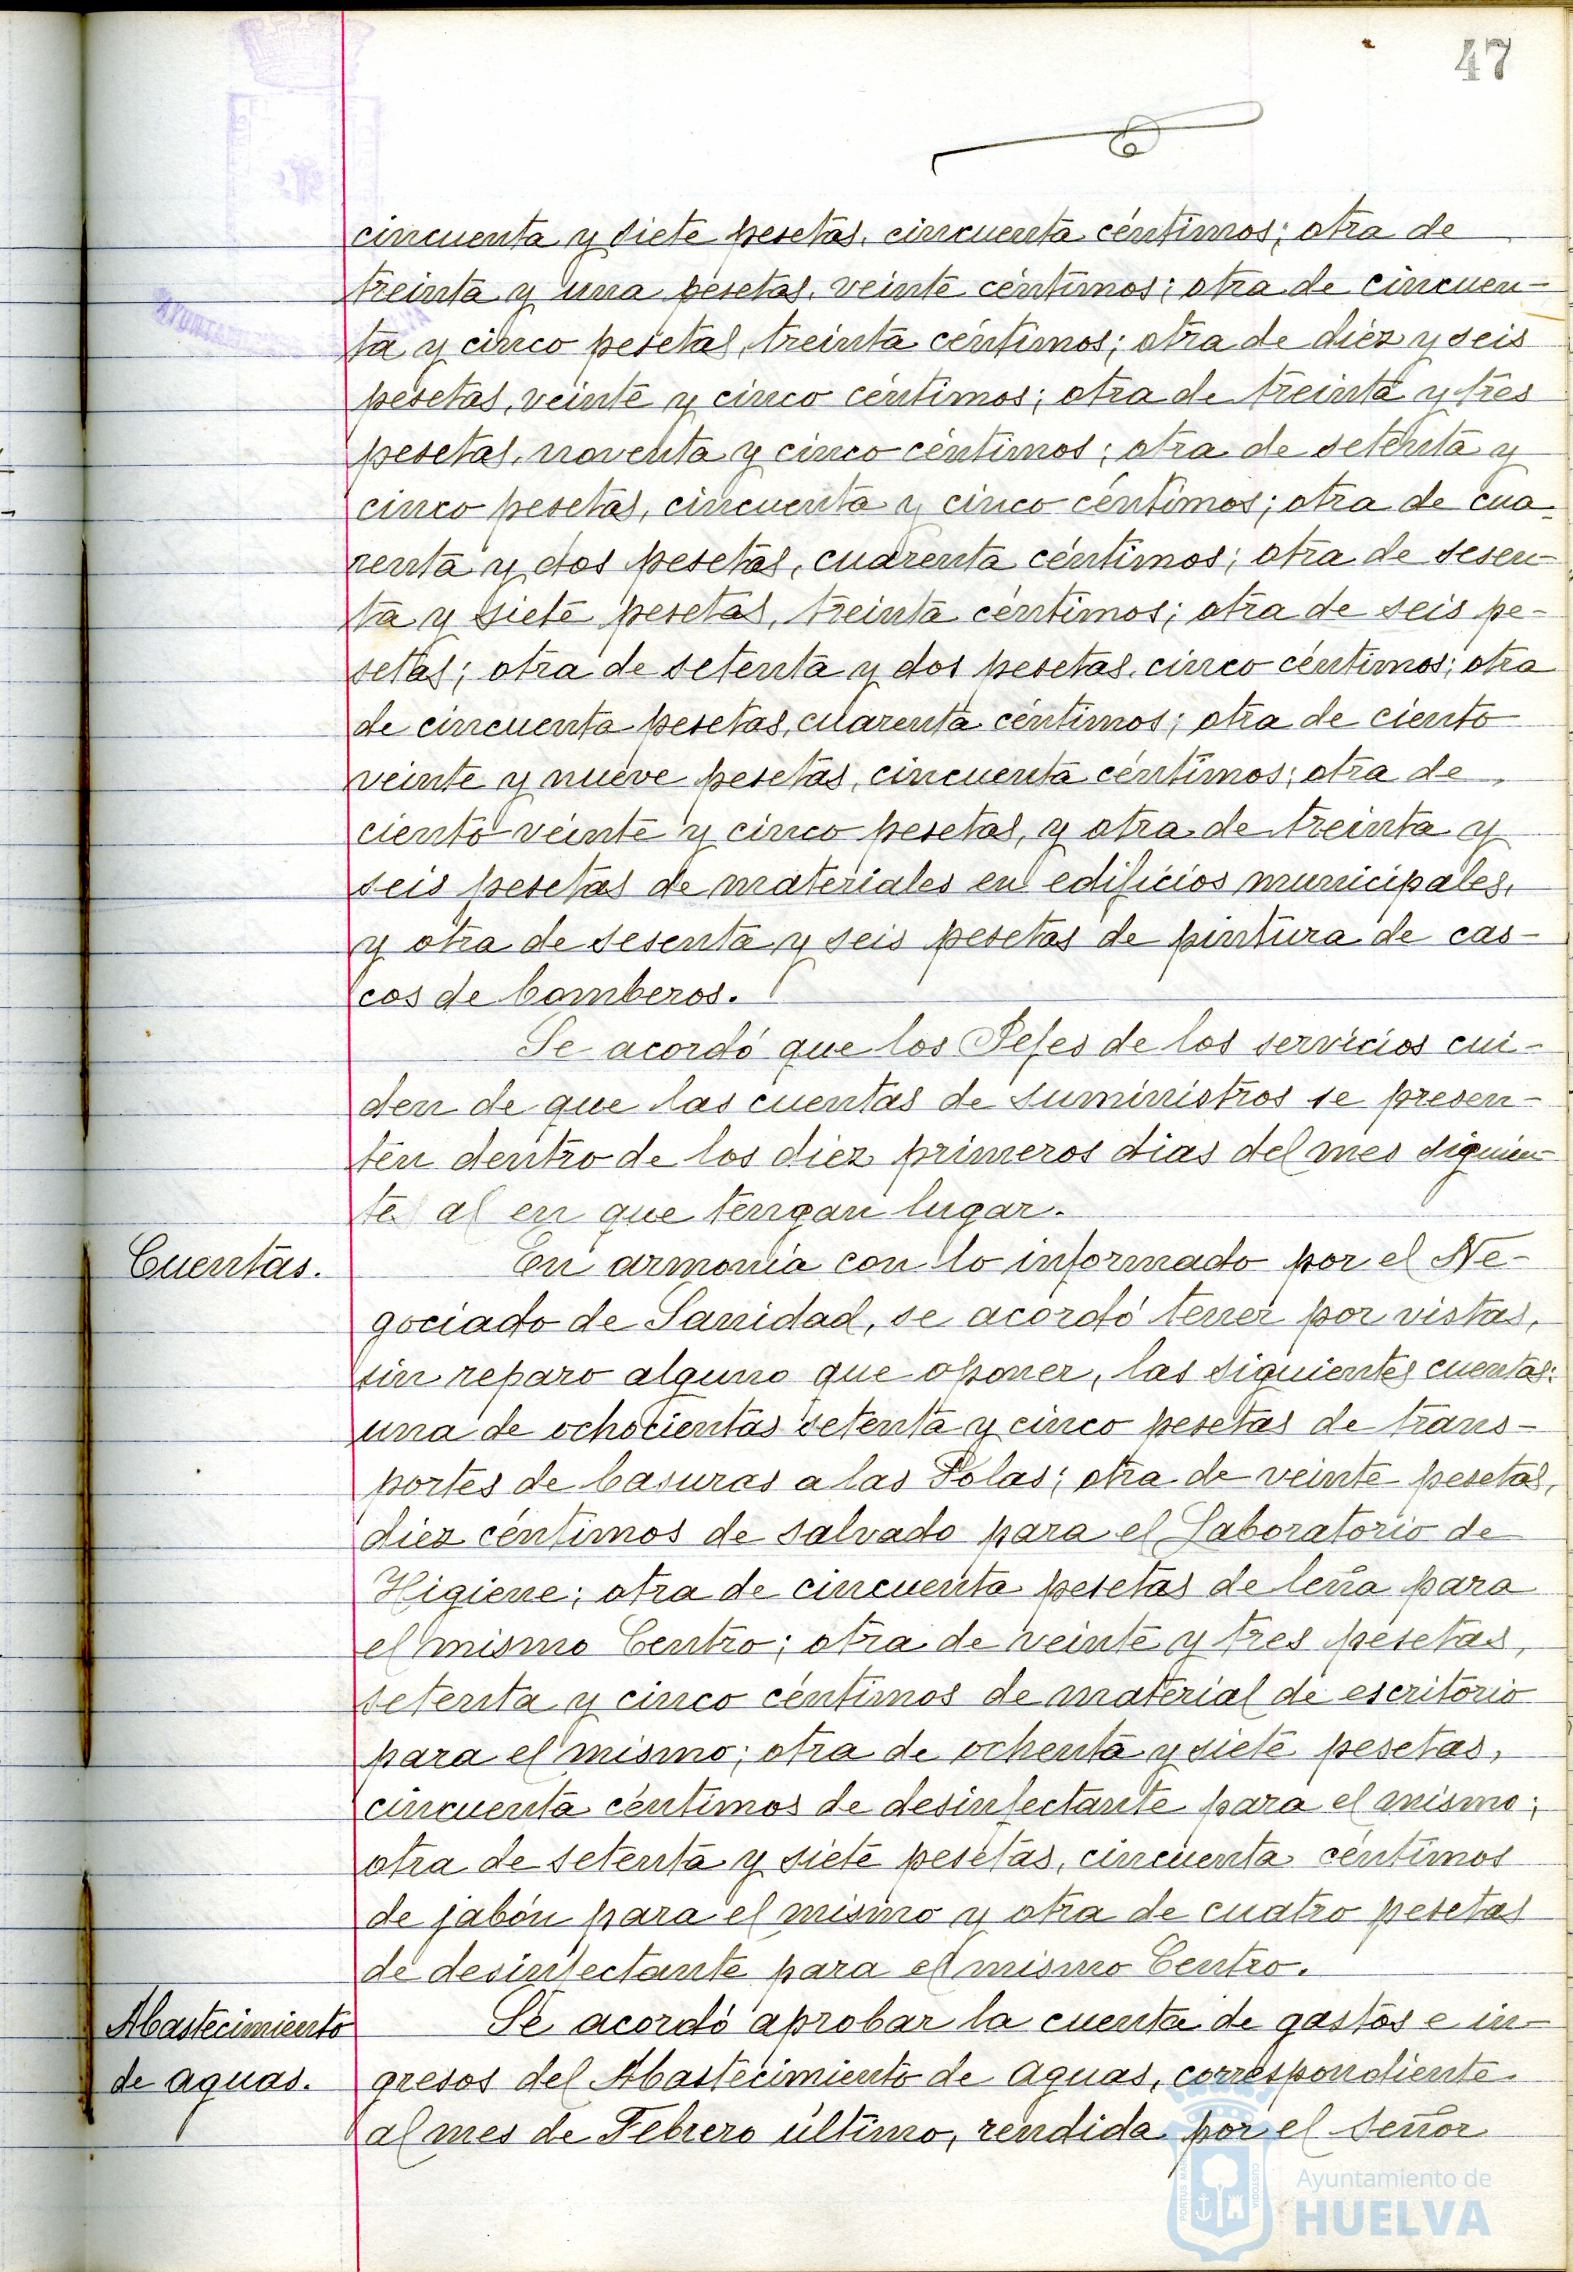 47
cincuenta y siete pesetas, cincuenta céntimos; otra de
treinta y una pesetas, veinte céntimos; otra de cincuen-
ta y cinco pesetas, treinta céntimos; otra de diez y seis
pesetas, veinte y cinco céntimos; otra de treinta y tres
pesetas, noventa y cinco céntimos; otra de setenta y
cinco pesetas, cincuenta y cinco céntimos; otra de cua-
renta y dos pesetas, cuarenta céntimos; otra de sesen-
ta y siete pesetas, treinta céntimos; otra de seis pe-
setas; otra de setenta y dos pesetas, cinco céntimos; otra
de cincuenta pesetas, cuarenta céntimos; otra de ciento
veinte y nueve pesetas, cincuenta céntimos; otra de
ciento veinte y cinco pesetas, y otra de treinta y
seis pesetas de materiales en edificios municipales,
y otra de sesenta y seis pesetas de pintura de cas-
cos de bomberos.
Se acordó que los Jefes de los servicios cui-
den de que las cuentas de suministros se presen-
ten dentro de los diez primeros dias del mes siguien-
te al en que tengan lugar.
Cuentas.
En armonía con lo informado por el Ne-
gociado de Sanidad, se acordó tener por vistas,
sin reparo alguno que oponer, las siguientes cuentas:
una de ochocientas setenta y cinco pesetas de trans-
portes de basuras a las Polas; otra de veinte pesetas,
diez céntimos de salvado para el Laboratorio de
Higiene; otra de cincuenta pesetas de leña para
el mismo Centro; otra de veinte y tres pesetas,
setenta y cinco céntimos de material de escritorio
para el mismo; otra de ochenta y siete pesetas,
cincuenta céntimos de desinfectante para el mismo;
otra de setenta y siete pesetas, cincuenta céntimos
de jabón para el mismo y otra de cuatro pesetas
de desinfectante para el mismo Centro.
Abastecimiento
de aguas.
Se acordó aprobar la cuenta de gastos e in-
gresos del Abastecimiento de aguas, correspondiente
al mes de Febrero último, rendida por el señor
Ayuntamiento de
HUELVA